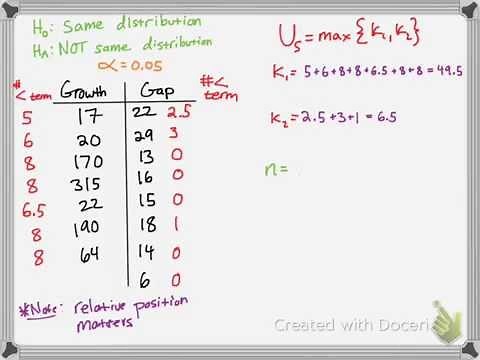 H₀: Same distribution
Hₐ: NOT same distribution
α = 0.05
# < term Growth Gap # < term
5 17 22 2.5
6 20 29 3
8 170 13 0
8 315 16 0
6.5 22 15 0
8 190 18 1
8 64 14 0
6 0
*Note: relative position
matters
Uₛ = max {K₁, K₂}
K₁ = 5+6+8+8+6.5+8+8 = 49.5
K₂ = 2.5+3+1 = 6.5
n =
Created with Doceri